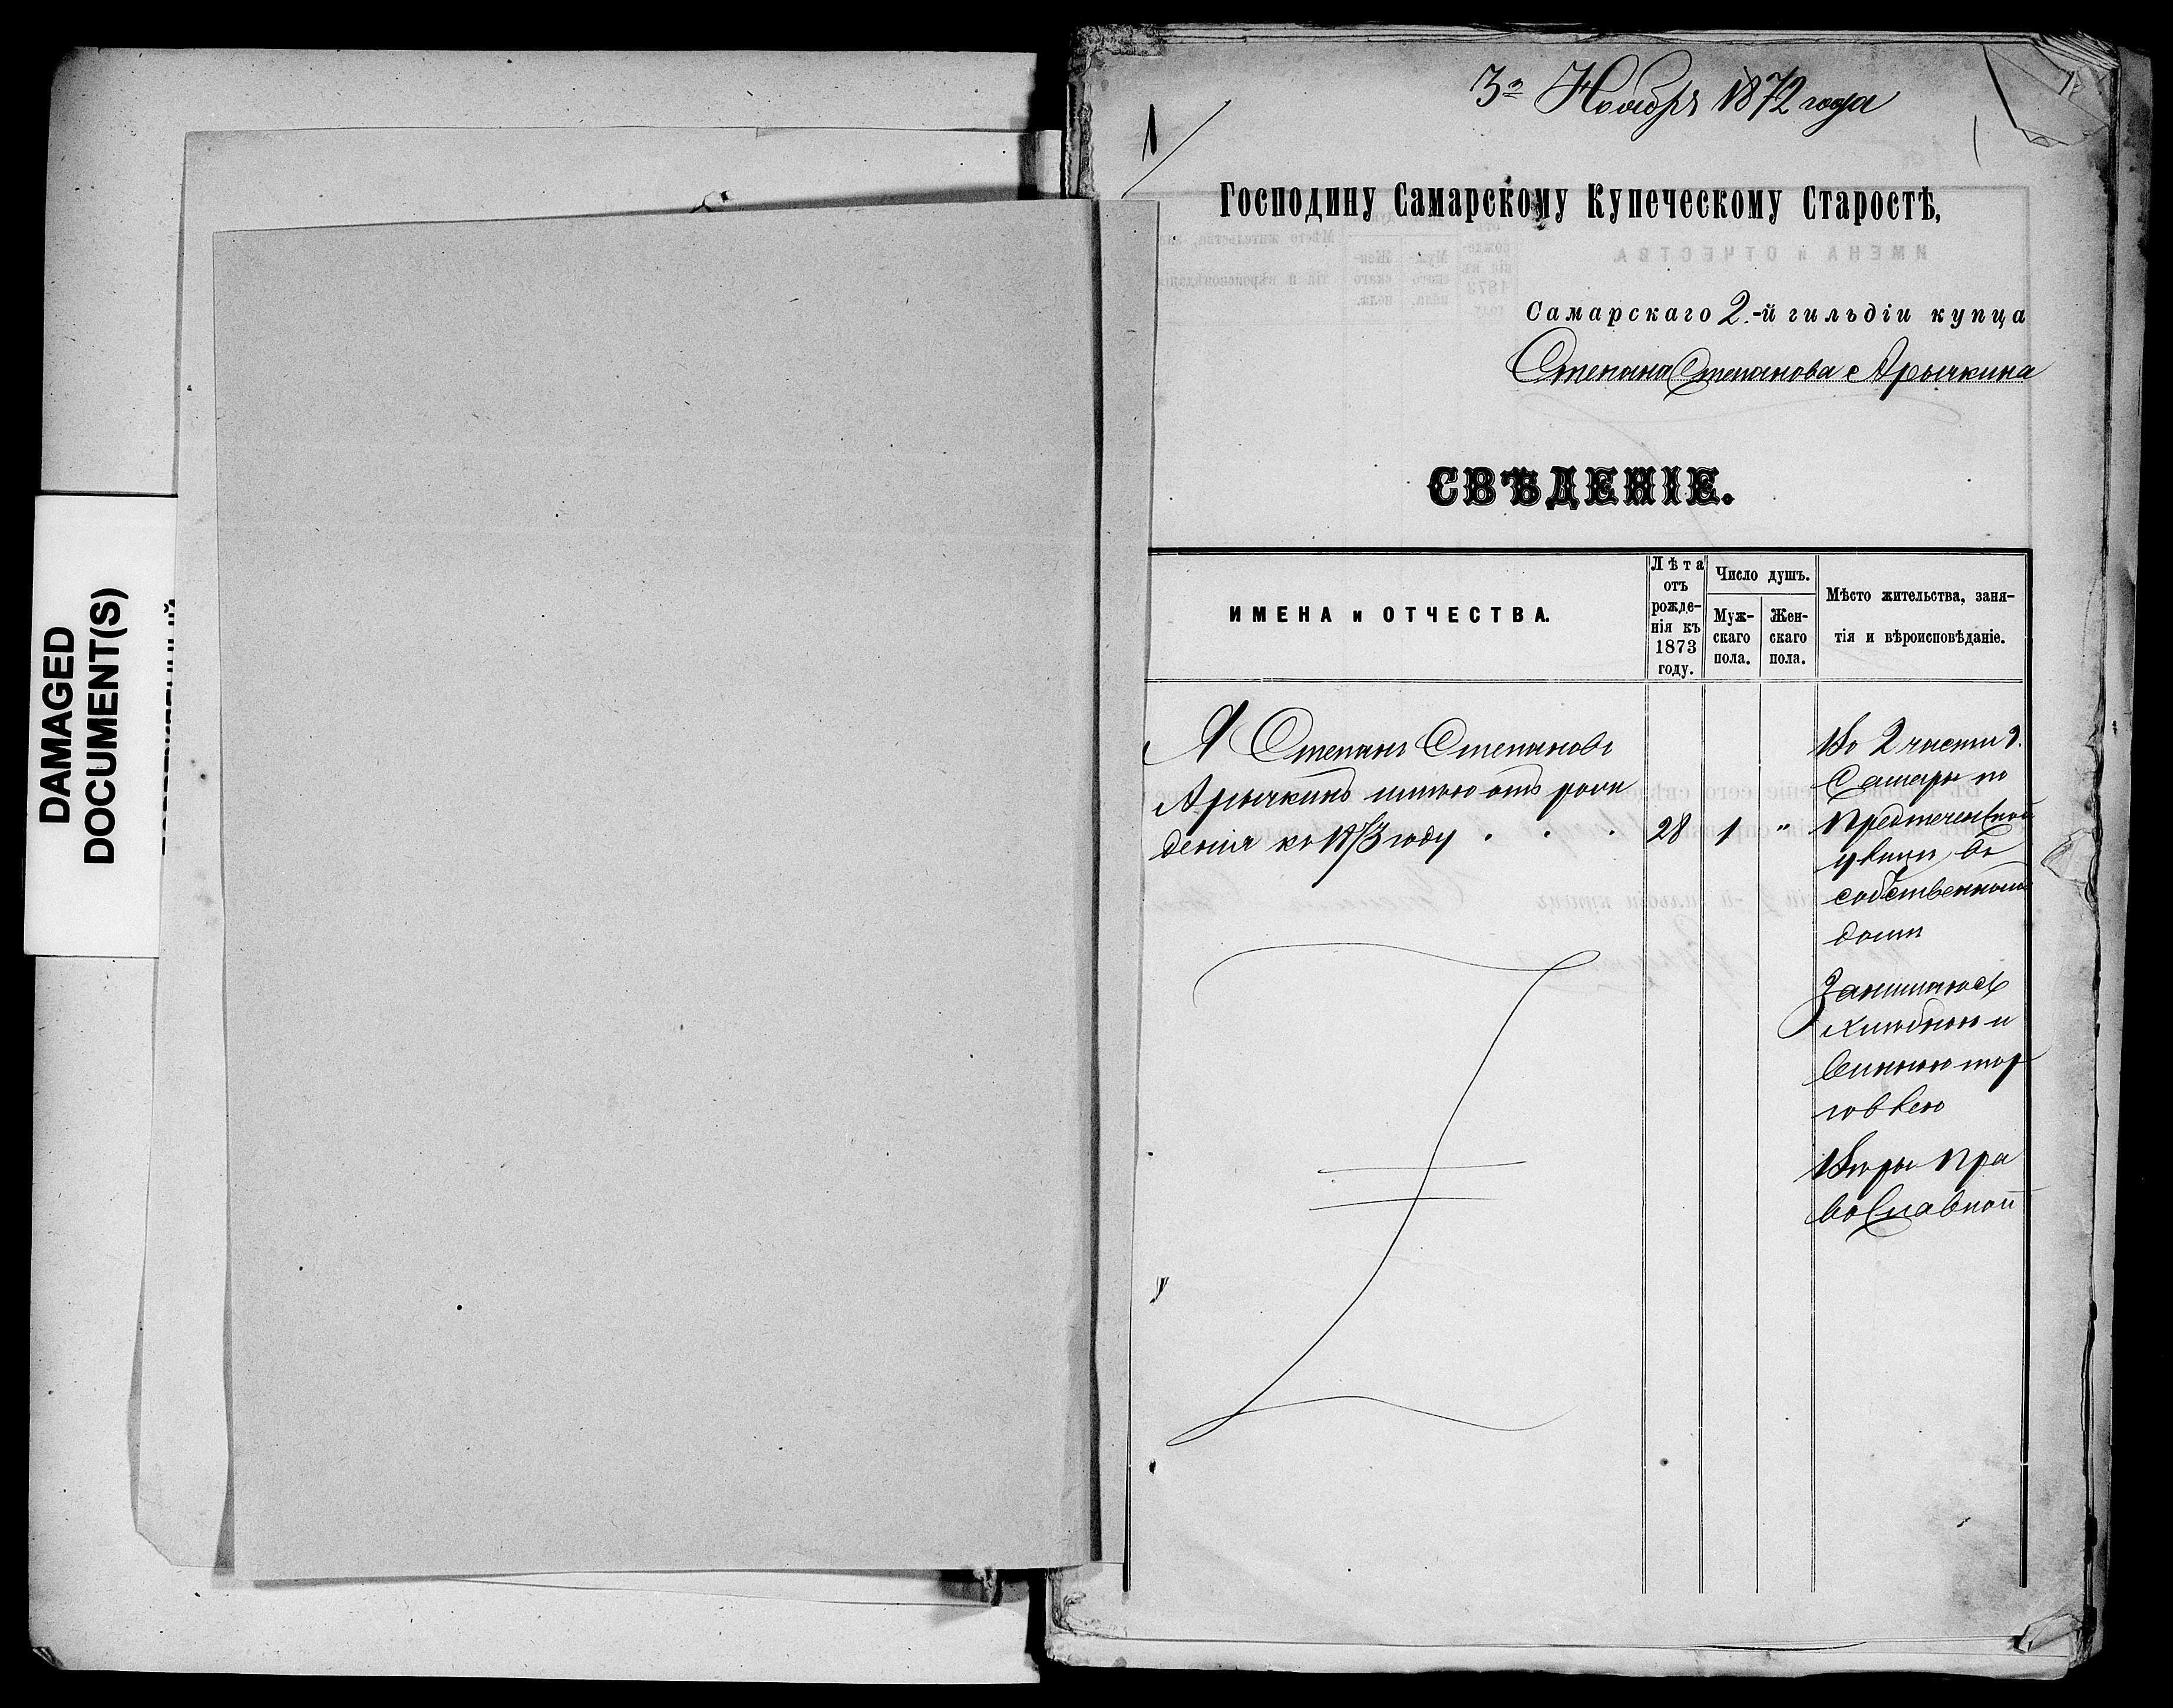 DAMAGED
DOCUMENT(S)
3го Ноября 1872 года
1
Господину Самарскому Купеческому Старостѣ,
Самарскаго 2.-й гильдіи купца
Степана Степанова Арычкина
СВѢДЕНІЕ.
ИМЕНА и ОТЧЕСТВА.
Лѣта
отъ
рожде-
нія къ
1873
году.
Число душъ.
Муж-
скаго
пола.
Жен-
скаго
пола.
Мѣсто жительства, заня-
тія и вѣроисповѣданіе.
Я Степанъ Степановъ
Арычкинъ отъ рож
денія къ 1873 году . . .
28 1 "
Во 2 части г.
Самары по
Предтеченской
улицѣ, въ
собственномъ
домѣ
Занимаюсь
хлѣбною и
винною тор
говлею
Вѣры Пра
вославной